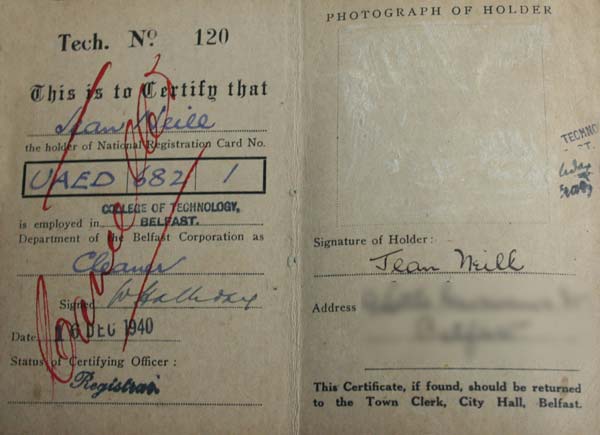 Tech. No 120
This is to Certify that
Jean Neill
the holder of National Registration Card No.
UAED 682 1
COLLEGE OF TECHNOLOGY,
is employed in BELFAST.
Department of the Belfast Corporation as
Cleaner
Signed W Halliday
Date 16 DEC 1940
Status of Certifying Officer :
Registrar.
Cancelled
PHOTOGRAPH OF HOLDER
TECHNO
Signature of Holder :
Jean Neill
Address
Belfast
This Certificate, if found, should be returned
to the Town Clerk, City Hall, Belfast.